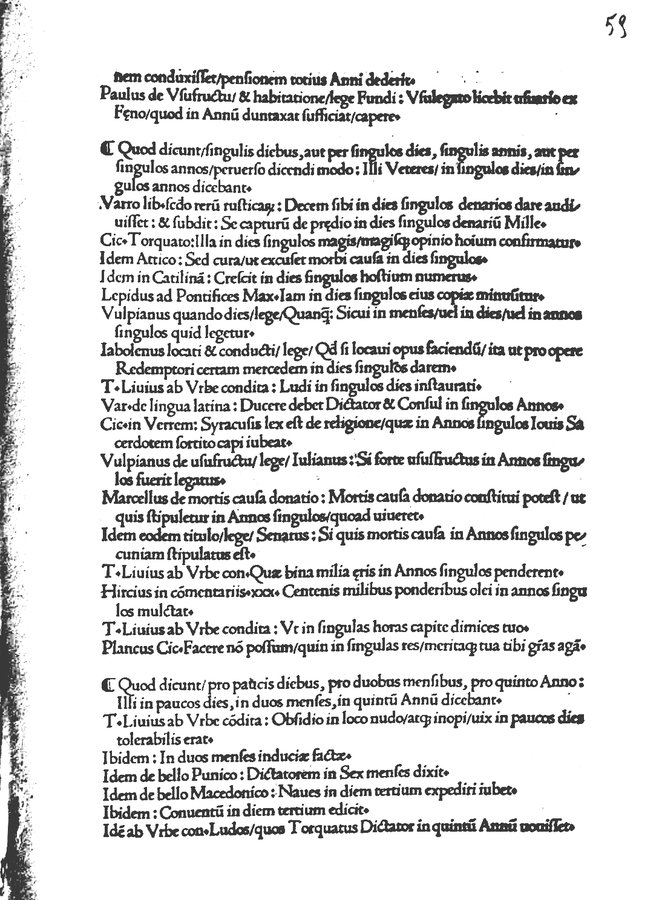 59
nem conduxiſſet/penſionem totius Anni dederit.
Paulus de Vſufructu/ & habitatione/lege Fundi : Vſulegato licebit uſuario ex
Fęno/quod in Annū duntaxat ſufficiat/capere.
¶ Quod dicunt/ſingulis diebus,aut per ſingulos dies, ſingulis annis, aut per
ſingulos annos/peruerſo dicendi modo : Illi Veteres/ in ſingulos dies/in ſin/
gulos annos dicebant.
Varro lib.ſcđo rerū ruſticaꝝ : Decem ſibi in dies ſingulos denarios dare audi/
uiſſet : & ſubdit : Se capturū de prędio in dies ſingulos denariū Mille.
Cic.Torquato:Illa in dies ſingulos magis/magiſqꝫ opinio hoium confirmatur.
Idem Attico : Sed cura/ut excuſet morbi cauſa in dies ſingulos.
Idem in Catilinā : Creſcit in dies ſingulos hoſtium numerus.
Lepidus ad Pontifices Max.Iam in dies ſingulos eius copiæ minuūtur.
Vulpianus quando dies/lege/Quanqꝫ: Sicui in menſes/uel in dies/uel in annos
ſingulos quid legetur.
Iabolenus locati & conducti/ lege/ Qđ ſi locaui opus faciendū/ ita ut pro opere
Redemptori certam mercedem in dies ſingulos darem.
T.Liuius ab Vrbe condita : Ludi in ſingulos dies inſtaurati.
Var.de lingua latina : Ducere debet Dictator & Conſul in ſingulos Annos.
Cic.in Verrem: Syracuſis lex eſt de religione/quæ in Annos ſingulos Iouis Sa
cerdotem ſortito capi iubeat.
Vulpianus de uſufructu/ lege/ Iulianus : Si forte uſuſfructus in Annos ſingu/
los fuerit legatus.
Marcellus de mortis cauſa donatio : Mortis cauſa donatio conſtitui poteſt / ut
quis ſtipuletur in Annos ſingulos/quoad uiueret.
Idem eodem titulo/lege/ Senatus : Si quis mortis cauſa in Annos ſingulos pe/
cuniam ſtipulatus eſt.
T.Liuius ab Vrbe con.Quæ bina milia ęris in Annos ſingulos penderent.
Hircius in cōmentariis.xxx. Centenis milibus ponderibus olei in annos ſingu
los mulctat.
T.Liuius ab Vrbe condita : Vt in ſingulas horas capite dimices tuo.
Plancus Cic.Facere nō poſſum/quin in ſingulas res/meritaqꝫ tua tibi grãs agã.
¶ Quod dicunt/ pro paucis diebus, pro duobus menſibus, pro quinto Anno :
Illi in paucos dies,in duos menſes,in quintū Annū dicebant.
T.Liuius ab Vrbe cōdita : Obſidio in loco nudo/atqꝫ inopi/uix in paucos dies
tolerabilis erat.
Ibidem : In duos menſes induciæ factæ.
Idem de bello Punico : Dictatorem in Sex menſes dixit.
Idem de bello Macedonico : Naues in diem tertium expediri iubet.
Ibidem : Conuentū in diem tertium edicit.
Idē ab Vrbe con.Ludos/quos Torquatus Dictator in quintū Annū uouiſſet.